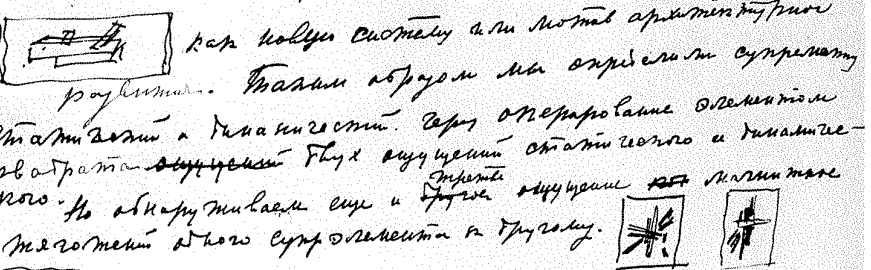 как новую систему или мотив архитектурного
развития. Таким образом мы определили супрематизм
статический и динамический. Через оперирование элементом
квадрата ощущений двух ощущений статического и динамичес-
кого. Но обнаруживаем еще и другое третье ощущение магнитное
тяготений одного супрэлемента к другому.